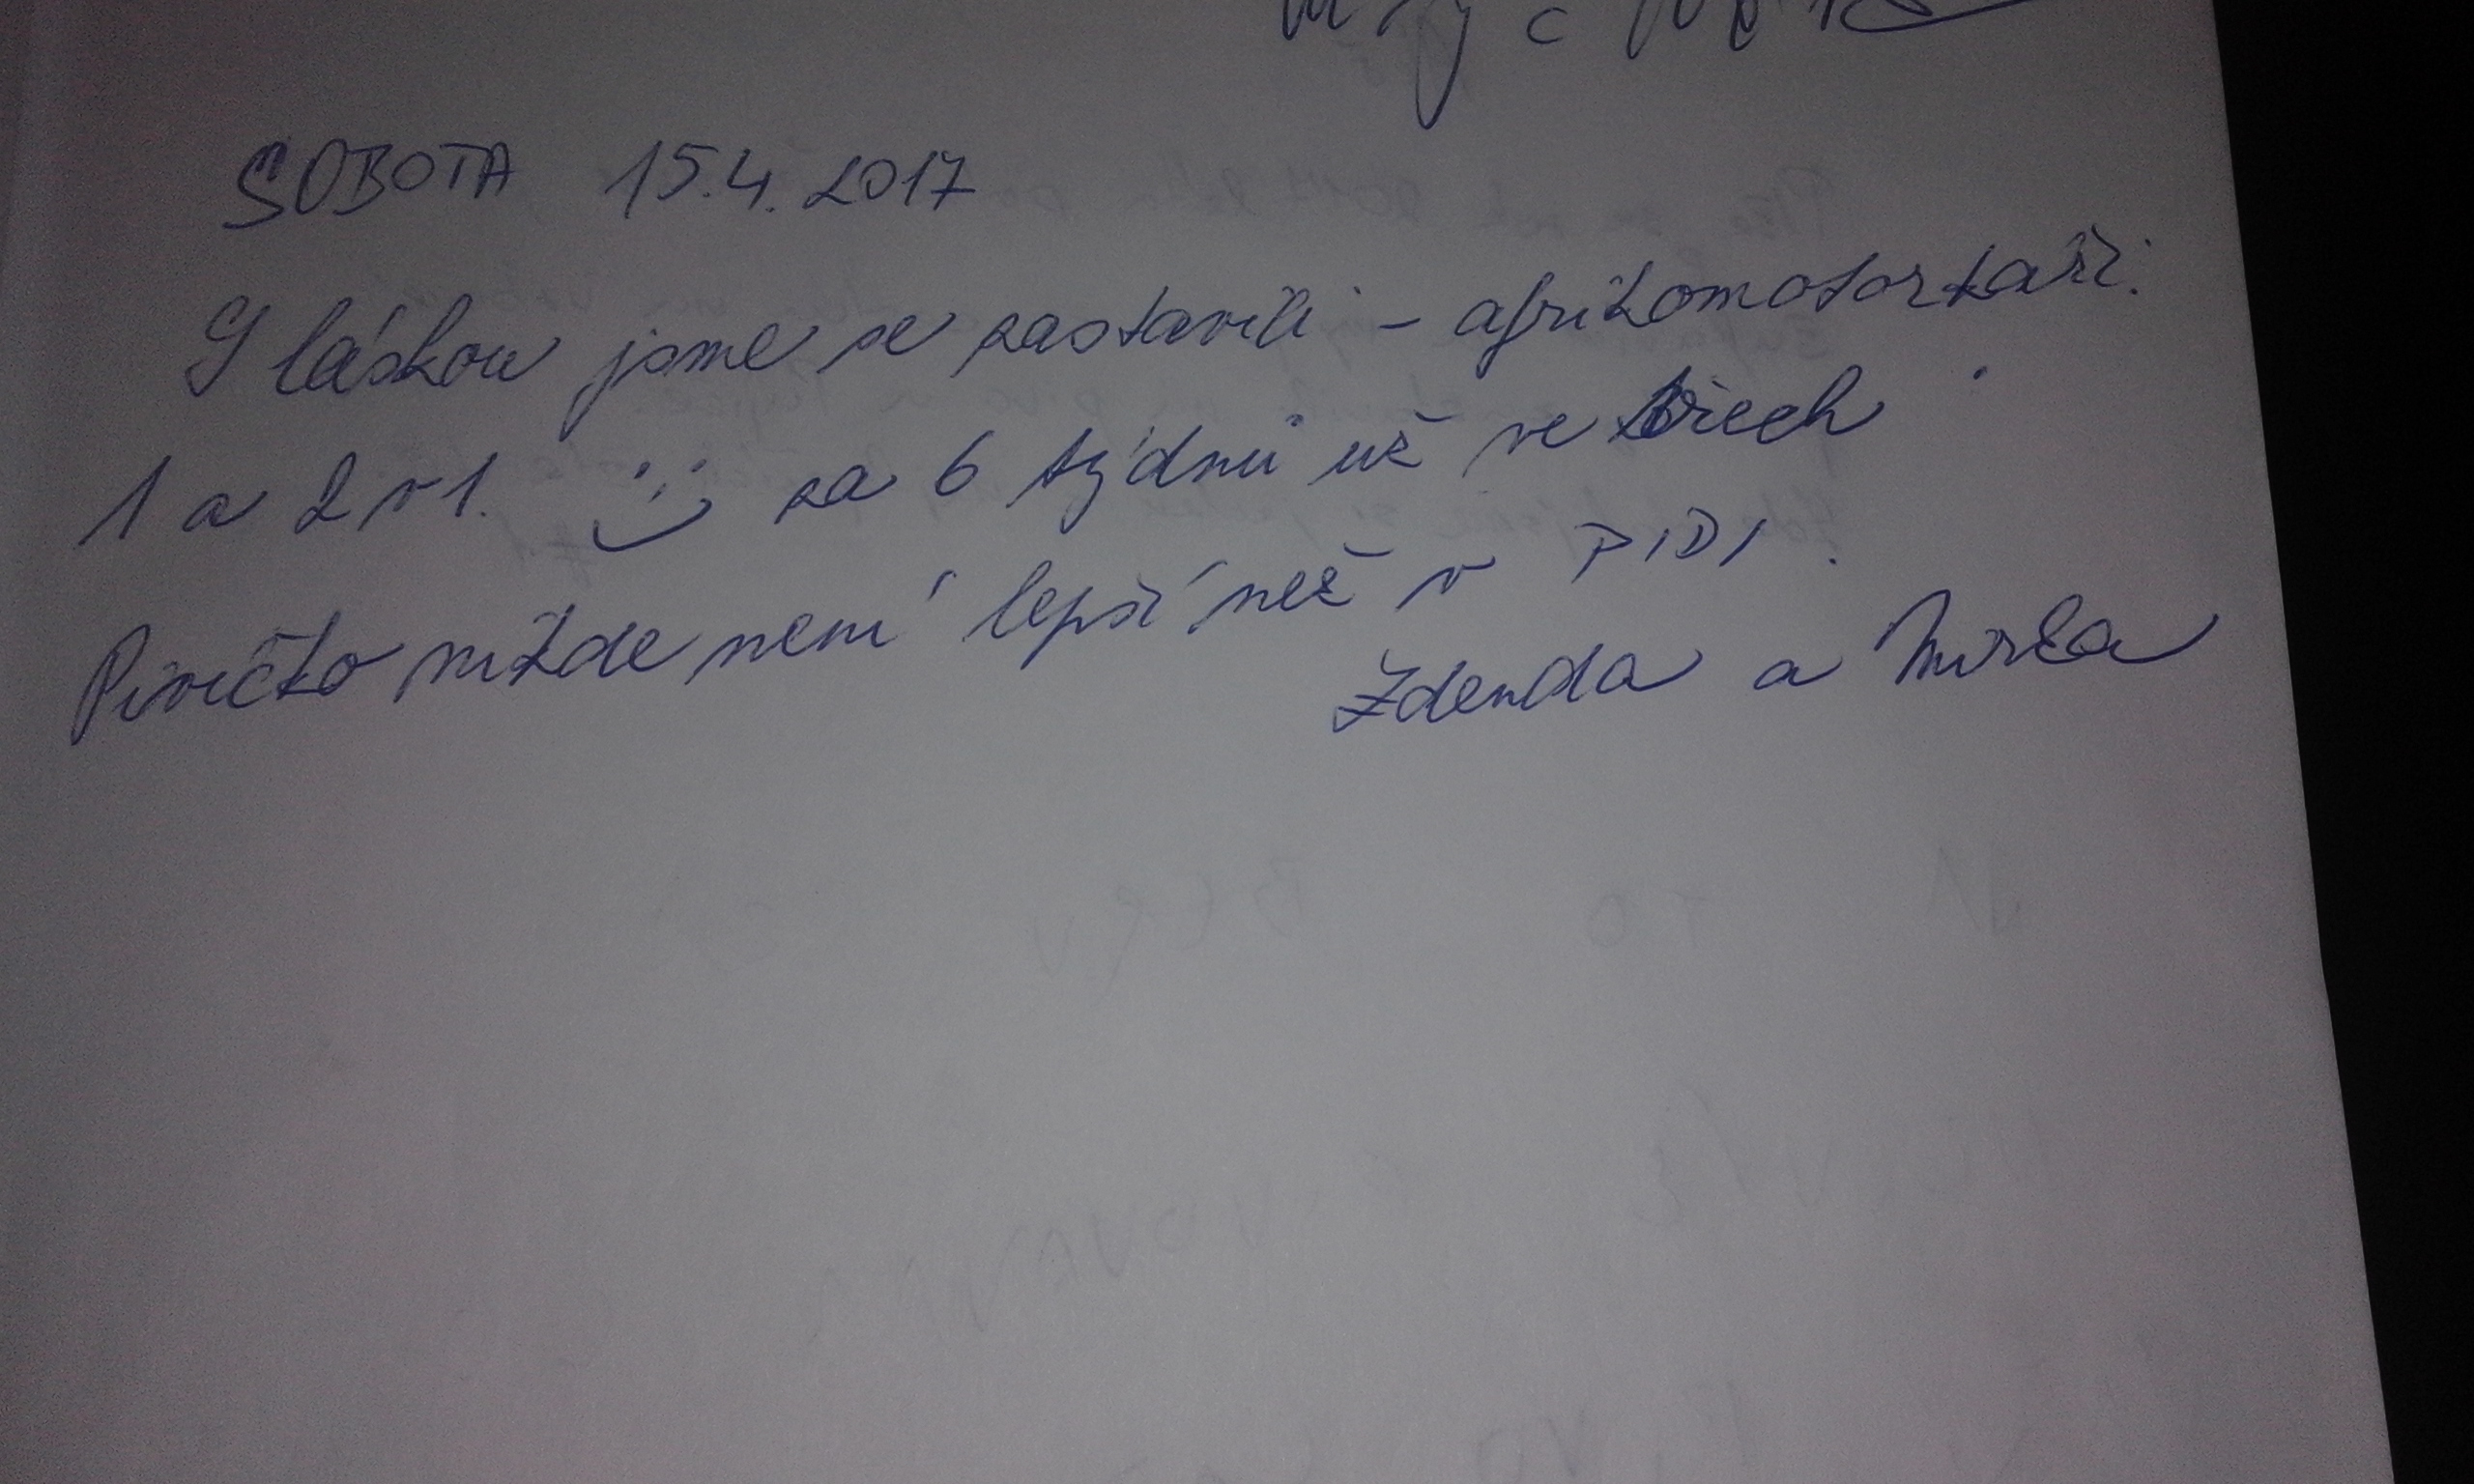 SOBOTA 15.4.2017
S láskou jsme se zastavili - afrikomotorkaři.
1 a 2 v 1. za 6 týdnů už ve třech
Pivíčko nikde není lepší než v PIDI.
Zdenda a Mirka